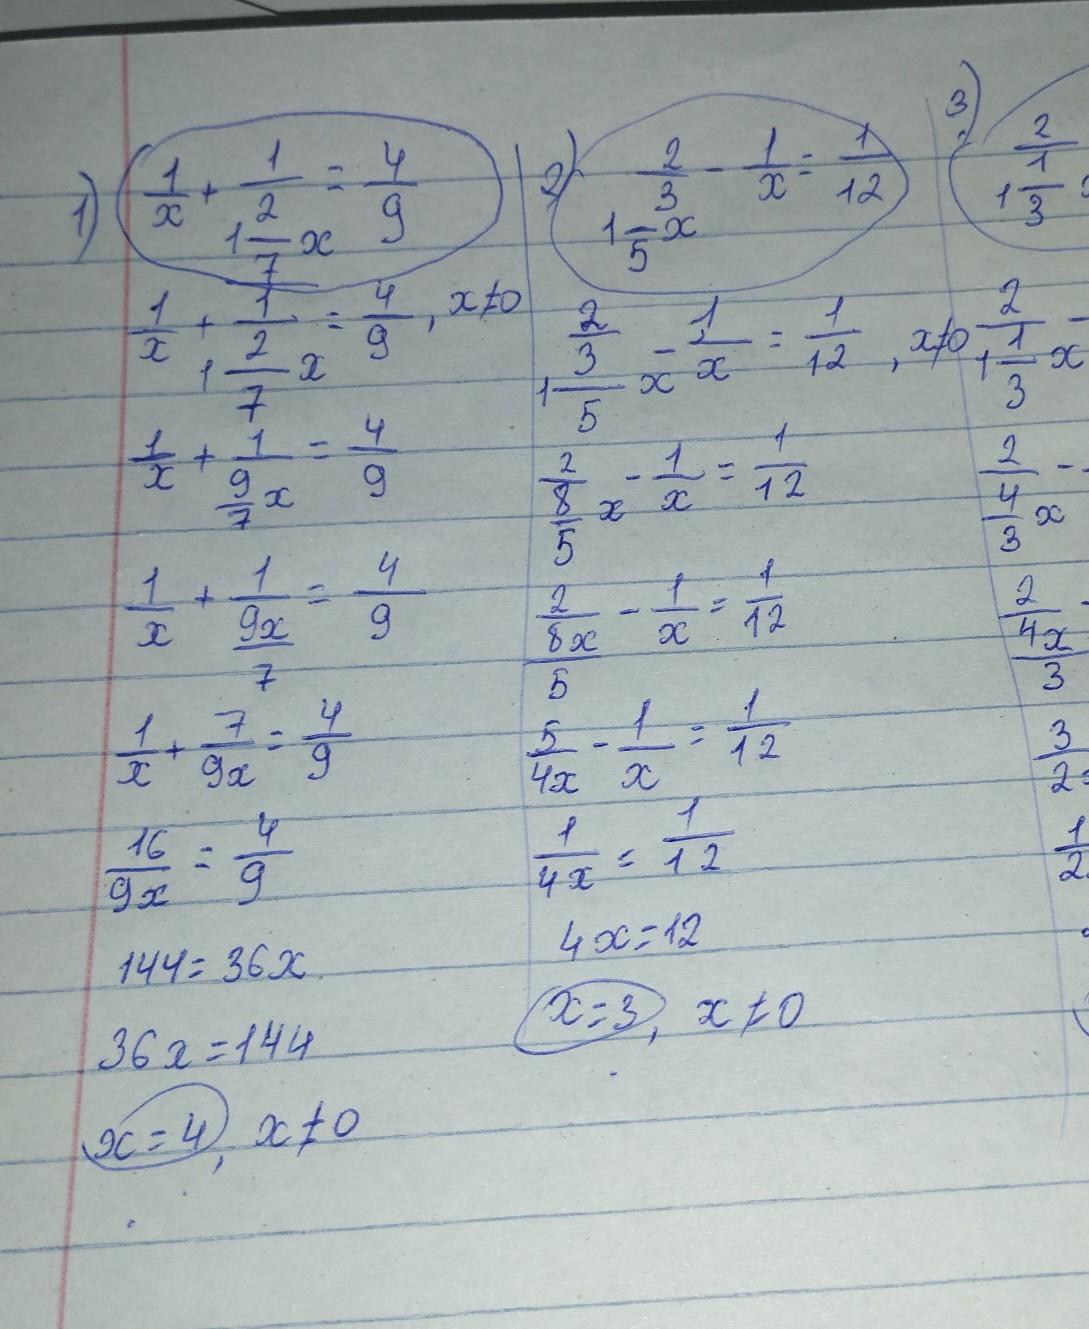 1) 1/x + 1/(1 2/7 x) = 4/9
1/x + 1/(1 2/7 x) = 4/9, x≠0
1/x + 1/(9/7 x) = 4/9
1/x + 1/(9x/7) = 4/9
1/x + 7/9x = 4/9
16/9x = 4/9
144 = 36x
36x = 144
x = 4, x≠0
2) 2/(1 3/5 x) - 1/x = 1/12
2/(1 3/5 x) - 1/x = 1/12, x≠0
2/(8/5 x) - 1/x = 1/12
2/(8x/5) - 1/x = 1/12
5/4x - 1/x = 1/12
1/4x = 1/12
4x = 12
x = 3, x≠0
3) 2/(1 1/3
2/(1 1/3 x) -
2/(4/3 x) -
2/(4x/3) -
3/2
1/2